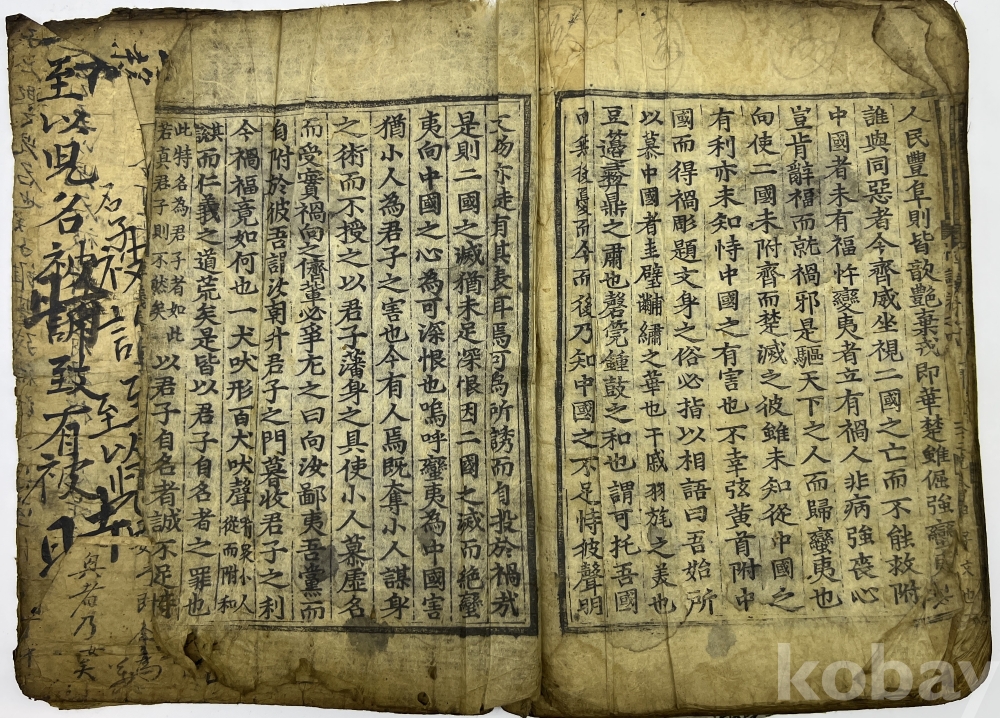 人民豐阜則皆歆艶棄戎即華楚雖倔強蠻夷其
誰與同惡者今齊威坐視二國之亡而不能救附
中國者未有福忤蠻夷者立有禍人非病強喪心
豈肯辭福而就禍邪是驅天下之人而歸蠻夷也
向使二國未附齊而楚滅之彼雖未知從中國之
有利亦未知恃中國之有害也不幸弦黃首附中
國而得禍彫題文身之俗必指以相語曰吾始所
以慕中國者圭璧黼繡之華也干戚羽旄之美也
豆籩彝鼎之肅也磬筦鍾鼓之和也謂可托吾國
而無後憂而今而後乃知中國之不足恃彼聲明
文物亦走有其表耳焉可為所誘而自投於禍哉
是則二國之滅猶未足深恨因二國之滅而絶蠻
夷向中國之心為可深恨也嗚呼蠻夷為中國害
猶小人為君子之害也今有人焉既奪小人謀身
之術而不授之以君子藩身之具使小人慕虛名
而受實禍向之儕輩必爭尤之曰向汝鄙夷吾黨而
自附於彼吾謂汝朝升君子之門暮收君子之利
今禍福竟如何也一犬吠形百犬吠聲皆衆小人從而附和
而仁義之道荒矣是皆以君子自名者之罪也
此特名為君子者如此若真君子則不然矣以君子自名者誠不足恃
至以兒名被誚致有被
kobay